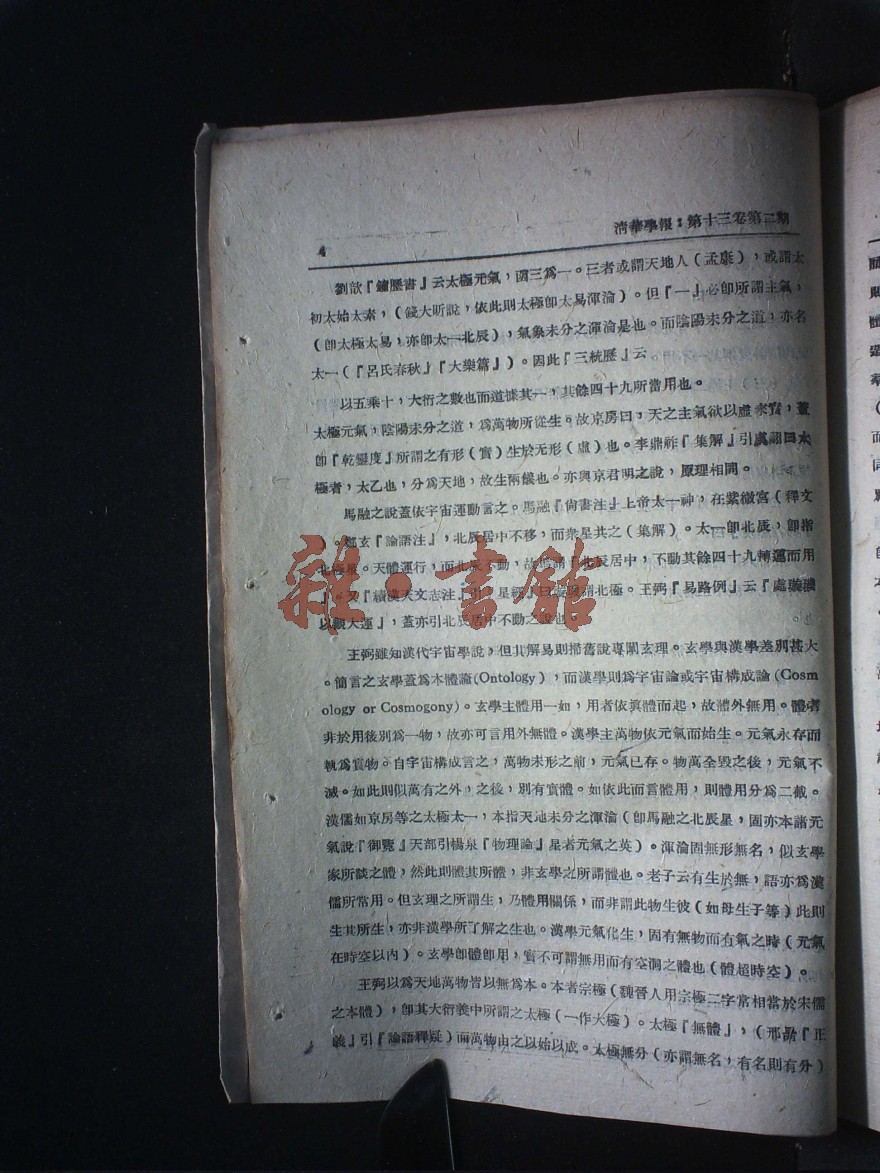 4
清華學報：第十三卷第二期
劉歆『鐘歷書』云太極元氣，函三爲一。三者或謂天地人（孟康），或謂太
初太始太素，（錢大昕說，依此則太極卽太易渾淪）。但『一』必卽所謂主氣，
（卽太極太易，亦卽太一北辰），氣象未分之渾淪是也。而陰陽未分之道，亦名
太一（『呂氏春秋』『大樂篇』）。因此『三統歷』云
以五乘十，大衍之數也而道據其一，其餘四十九所當用也。
太極元氣，陰陽未分之道，爲萬物所從生。故京房曰，天之主氣欲以虛來實，蓋
卽『乾鑿度』所謂之有形（實）生於无形（虛）也。李鼎祚『集解』引虞翻曰太
極者，太乙也，分爲天地，故生兩儀也。亦與京君明之說，原理相同。
馬融之說蓋依宇宙運動言之。馬融『尙書注』上帝太一神，在紫微宮（釋文
）。鄭玄『論語注』，北辰居中不移，而衆星共之（集解）。太一卽北辰，卽指
北極星。天體運行，而北辰不動，故馬謂『北辰居中，不動其餘四十九轉運而用
』。又『續漢天文志注』引『星經』曰璇璣謂北極。王弼『易路例』云『處璇璣
以觀大運』，蓋亦引北辰居中不動之說也。
王弼雖知漢代宇宙學說，但其解易則掃舊說專闡玄理。玄學與漢學差別甚大
。簡言之玄學蓋爲本體論(Ontology），而漢學則爲宇宙論或宇宙構成論（Cosm
ology or Cosmogony)。玄學主體用一如，用者依眞體而起，故體外無用。體者
非於用後別爲一物，故亦可言用外無體。漢學主萬物依元氣而始生。元氣永存而
執爲實物。自宇宙構成言之，萬物未形之前，元氣已存。物萬全毀之後，元氣不
滅。如此則似萬有之外，之後，別有實體。如依此而言體用，則體用分爲二截。
漢儒如京房等之太極太一，本指天地未分之渾淪（卽馬融之北辰星，固亦本諸元
氣說『御覽』天部引楊泉『物理論』星者元氣之英）。渾淪固無形無名，似玄學
家所談之體，然此則體其所體，非玄學之所謂體也。老子云有生於無，語亦爲漢
儒所常用。但玄理之所謂生，乃體用關係，而非謂此物生彼（如母生子等）此則
生其所生，亦非漢學所了解之生也。漢學元氣化生，固有無物而有氣之時（元氣
在時空以內）。玄學卽體卽用，實不可謂無用而有空洞之體也（體超時空）。
王弼以爲天地萬物皆以無爲本。本者宗極（魏晉人用宗極二字常相當於宋儒
之本體），卽其大衍義中所謂之太極（一作大極）。太極『無體』，（邢昺『正
義』引『論語釋疑）而萬物由之以始以成。太極無分（亦謂無名，有名則有分）
雜·書館